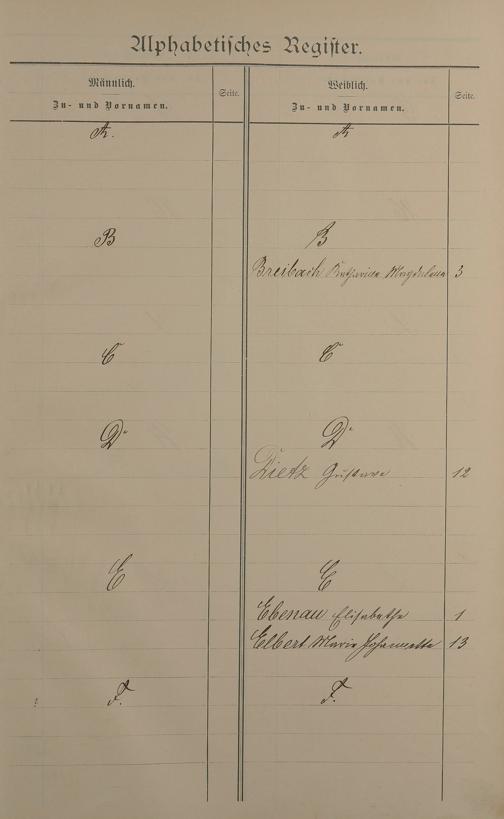 Alphabetisches Register.
Männlich.
Zu- und Vornamen.
Seite.
Weiblich.
Zu- und Vornamen.
Seite.
A.
A
B
B
Breibach Katharina Magdalena 3
C
C
D
D
Dietz Gustave 12
E
E
Ebenau Elisabethe 1
Elbert Marie Johannette 13
F.
F.